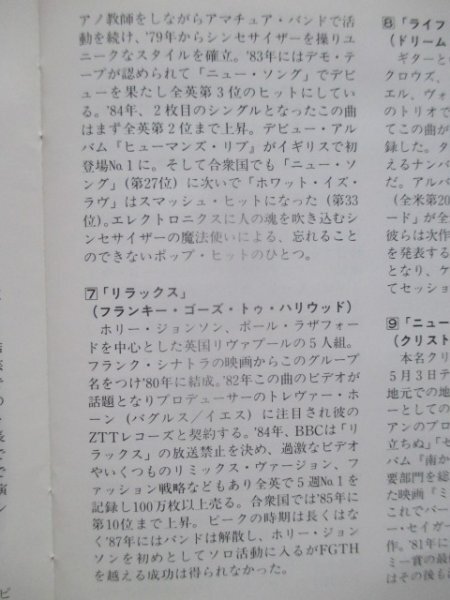 アノ教師をしながらアマチュア・バンドで活
動を続け、'79年からシンセサイザーを操りユ
ニークなスタイルを確立。'83年にはデモ・テ
ープが認められて「ニュー・ソング」でデビ
ューを果たし全英第3位のヒットにしてい
る。'84年、2枚目のシングルとなったこの曲
はまず全英第2位まで上昇。デビュー・アル
バム『ヒューマンズ・リブ』がイギリスで初
登場No.1に。そして合衆国でも「ニュー・ソ
ング」(第27位)に次いで「ホワット・イズ・
ラヴ」はスマッシュ・ヒットになった(第33
位)。エレクトロニクスに人の魂を吹き込むシ
ンセサイザーの魔法使いによる、忘れること
のできないポップ・ヒットのひとつ。
7「リラックス」
(フランキー・ゴーズ・トゥ・ハリウッド)
ホリー・ジョンソン、ポール・ラザフォー
ドを中心とした英国リヴァプールの5人組。
フランク・シナトラの映画からこのグループ
名をつけ'80年に結成。'82年この曲のビデオが
話題となりプロデューサーのトレヴァー・ホ
ーン(バグルス/イエス)に注目され彼の
ZTTレコーズと契約する。'84年、BBCは「リ
ラックス」の放送禁止を決め、過激なビデオ
やいくつものリミックス・ヴァージョン、フ
ァッション戦略などもあり全英で5週No.1を
記録し100万枚以上売る。合衆国では'85年に
第10位まで上昇。ピークの時期は長くはな
く'87年にはバンドは解散し、ホリー・ジョン
ソンを初めとしてソロ活動に入るがFGTH
を越える成功は得られなかった。
8「ライフ
(ドリーム
ギターと
クロウズ、
エル、ヴォ
のトリオで
てこの曲が
録した。タ
えるナンバ
だ。アルバ
(全米第20
ード」が全
彼らは次作
を発表する
となり、ケ
てセッショ
9「ニュー
(クリスト
本名クリ
5月3日テ
地元での地
ーとしての
アンのプロ
立ちぬ」「セ
バム『南か
要部門を総
た映画『ミ
これでバー
ー・セイガー
作。'81年に
ミー賞の最
はその後も